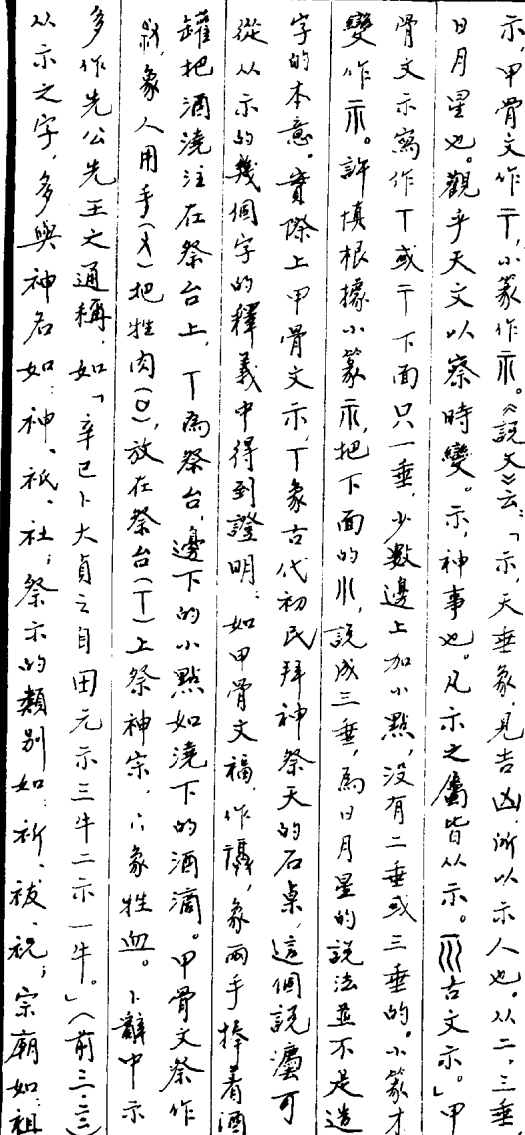 示，甲骨文作〒，小篆作示。《說文》云：「示，天垂象，見吉凶，所以示人也。从二，三垂，
日月星也。觀乎天文以察時變。示，神事也。凡示之屬皆从示。古文示。」甲
骨文示寫作丅或〒下面只一垂，少數邊上加小點，没有二垂或三垂的。小篆才
變作示。許慎根據小篆示，把下面的小，說成三垂，為日月星的說法並不是造
字的本意。實際上甲骨文示，丅象古代初民拜神祭天的石桌，這個說灋可
從从示的幾個字的釋義中得到證明：如甲骨文福，作，象兩手捧着酒
罐把酒澆注在祭台上，丅為祭台，邊下的小點如澆下的酒滴。甲骨文祭作
，象人用手(又)把牲肉(口)，放在祭台(丅)上祭神宗，八象牲血。卜辭中示
多作先公先王之通稱，如「辛巳卜大貞之自田元示三牛二示一牛。」(前三·二二)
从示之字，多與神名如：神、祇、社；祭示的類别如：祈、祓、祝；宗廟如：祖